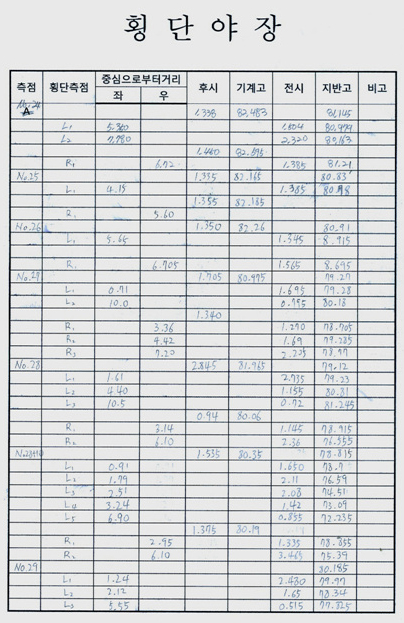 횡 단 야 장
측점 횡단측점 중심으로부터거리 후시 기계고 전시 지반고 비고
좌 우
No.24 1.338 82.483 81.145
A
L₁ 5.360 80.979
L₂ 2.320 80.163
1.460
R₁ 6.72 1.385 81.21
No.25 1.335 82.165 80.83
L₁ 4.15 1.385
1.355 82.185
R₁ 5.60
No.26 1.350 82.26 80.91
L₁ 5.65 1.345
R₁ 6.705 1.565
No.27 1.705 80.975 79.27
L₁ 0.71 1.695 79.28
L₂ 10.0 0.795 80.18
1.340
R₁ 3.36 1.270 78.705
R₂ 4.42 1.69 79.285
R₃ 7.20 2.205 78.77
No.28 2.845 81.965 79.12
L₁ 1.61 2.735 79.23
L₂ 4.40 1.155 80.81
L₃ 10.5 0.72 81.245
0.94 80.06
R₁ 3.14 1.145 78.915
R₂ 6.10 2.36
No.28+10 1.535 80.35 78.815
L₁ 0.91 1.650 78.7
L₂ 1.79 2.11 76.59
L₃ 2.51 2.08 74.51
L₄ 3.24 1.42 73.09
L₅ 6.90 0.855 72.235
1.375 80.19
R₁ 2.95 1.335 78.855
R₂ 6.10 3.465 75.39
No.29 80.185
L₁ 1.24 2.430 79.77
L₂ 2.12 1.65 78.34
L₃ 5.55 0.515 77.825